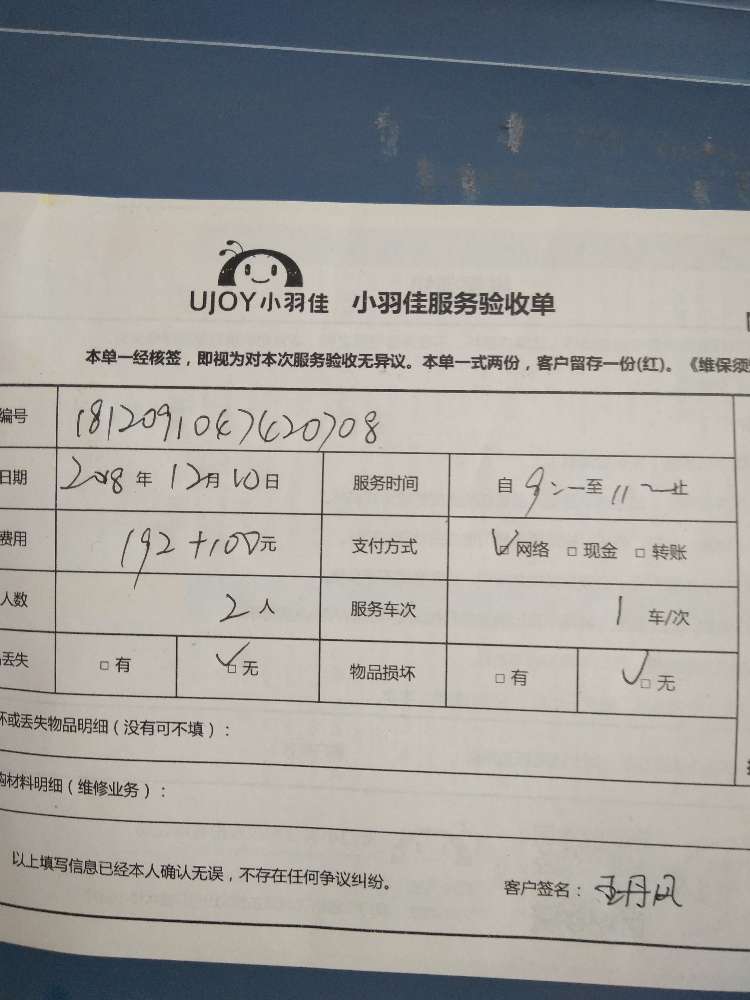 UJOY小羽佳 小羽佳服务验收单
本单一经核签，即视为对本次服务验收无异议。本单一式两份，客户留存一份(红)。《维保须
编号 1812091047420708
日期 2018年12月10日 服务时间 自9:一至11 止
费用 192+100元 支付方式 ☑网络 □现金 □转账
人数 2人 服务车次 1车/次
丢失 □有 ☑无 物品损坏 □有 ☑无
坏或丢失物品明细（没有可不填）：
购材料明细（维修业务）：
以上填写信息已经本人确认无误，不存在任何争议纠纷。 客户签名：